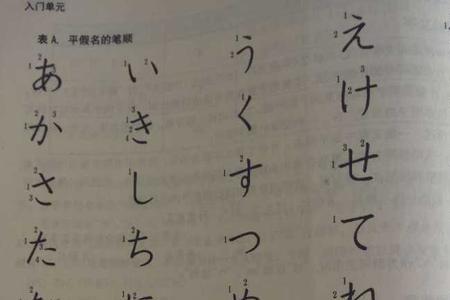 入门单元
表A. 平假名的笔顺
あ い う え
か き く け
さ し す せ
た ち つ て